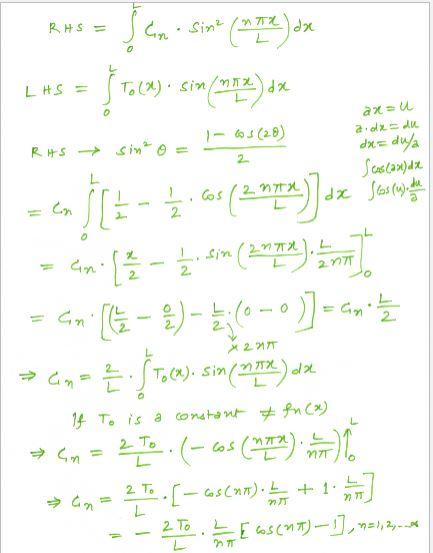 RHS = ∫₀ᴸ Cn · sin²(nπx/L) dx
LHS = ∫₀ᴸ T₀(x) · sin(nπx/L) dx
ax = u
a·dx = du
dx = du/a
∫cos(ax)dx
∫cos(u)·du/a
RHS → sin²θ = (1 - cos(2θ))/2
= Cn ∫₀ᴸ [1/2 - 1/2 · cos(2nπx/L)] dx
= Cn · [x/2 - 1/2 · sin(2nπx/L) · L/2nπ]₀ᴸ
= Cn · [(L/2 - 0/2) - L/2 · (0 - 0)] = Cn · L/2
× 2nπ
⇒ Cn = 2/L · ∫₀ᴸ T₀(x) · sin(nπx/L) dx
If T₀ is a constant ≠ fn(x)
⇒ Cn = 2T₀/L · (- cos(nπx/L) · L/nπ)↑₀ᴸ
⇒ Cn = 2T₀/L · [- cos(nπ) · L/nπ + 1 · L/nπ]
= - 2T₀/L · L/nπ [cos(nπ) - 1], n=1,2,...∞